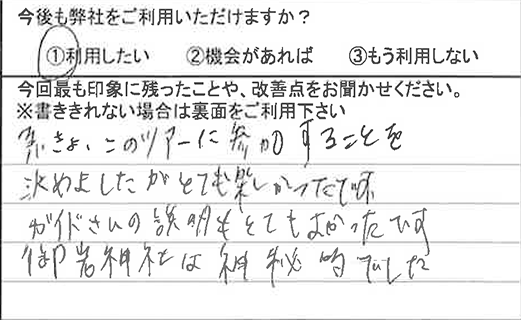 今後も弊社をご利用いただけますか？
①利用したい ②機会があれば ③もう利用しない
今回最も印象に残ったことや、改善点をお聞かせください。
※書ききれない場合は裏面をご利用下さい
急きょ、このツアーに参加することを
決めましたがとても楽しかったです
ガイドさんの説明もとてもよかったです
御岩神社は神秘的でした